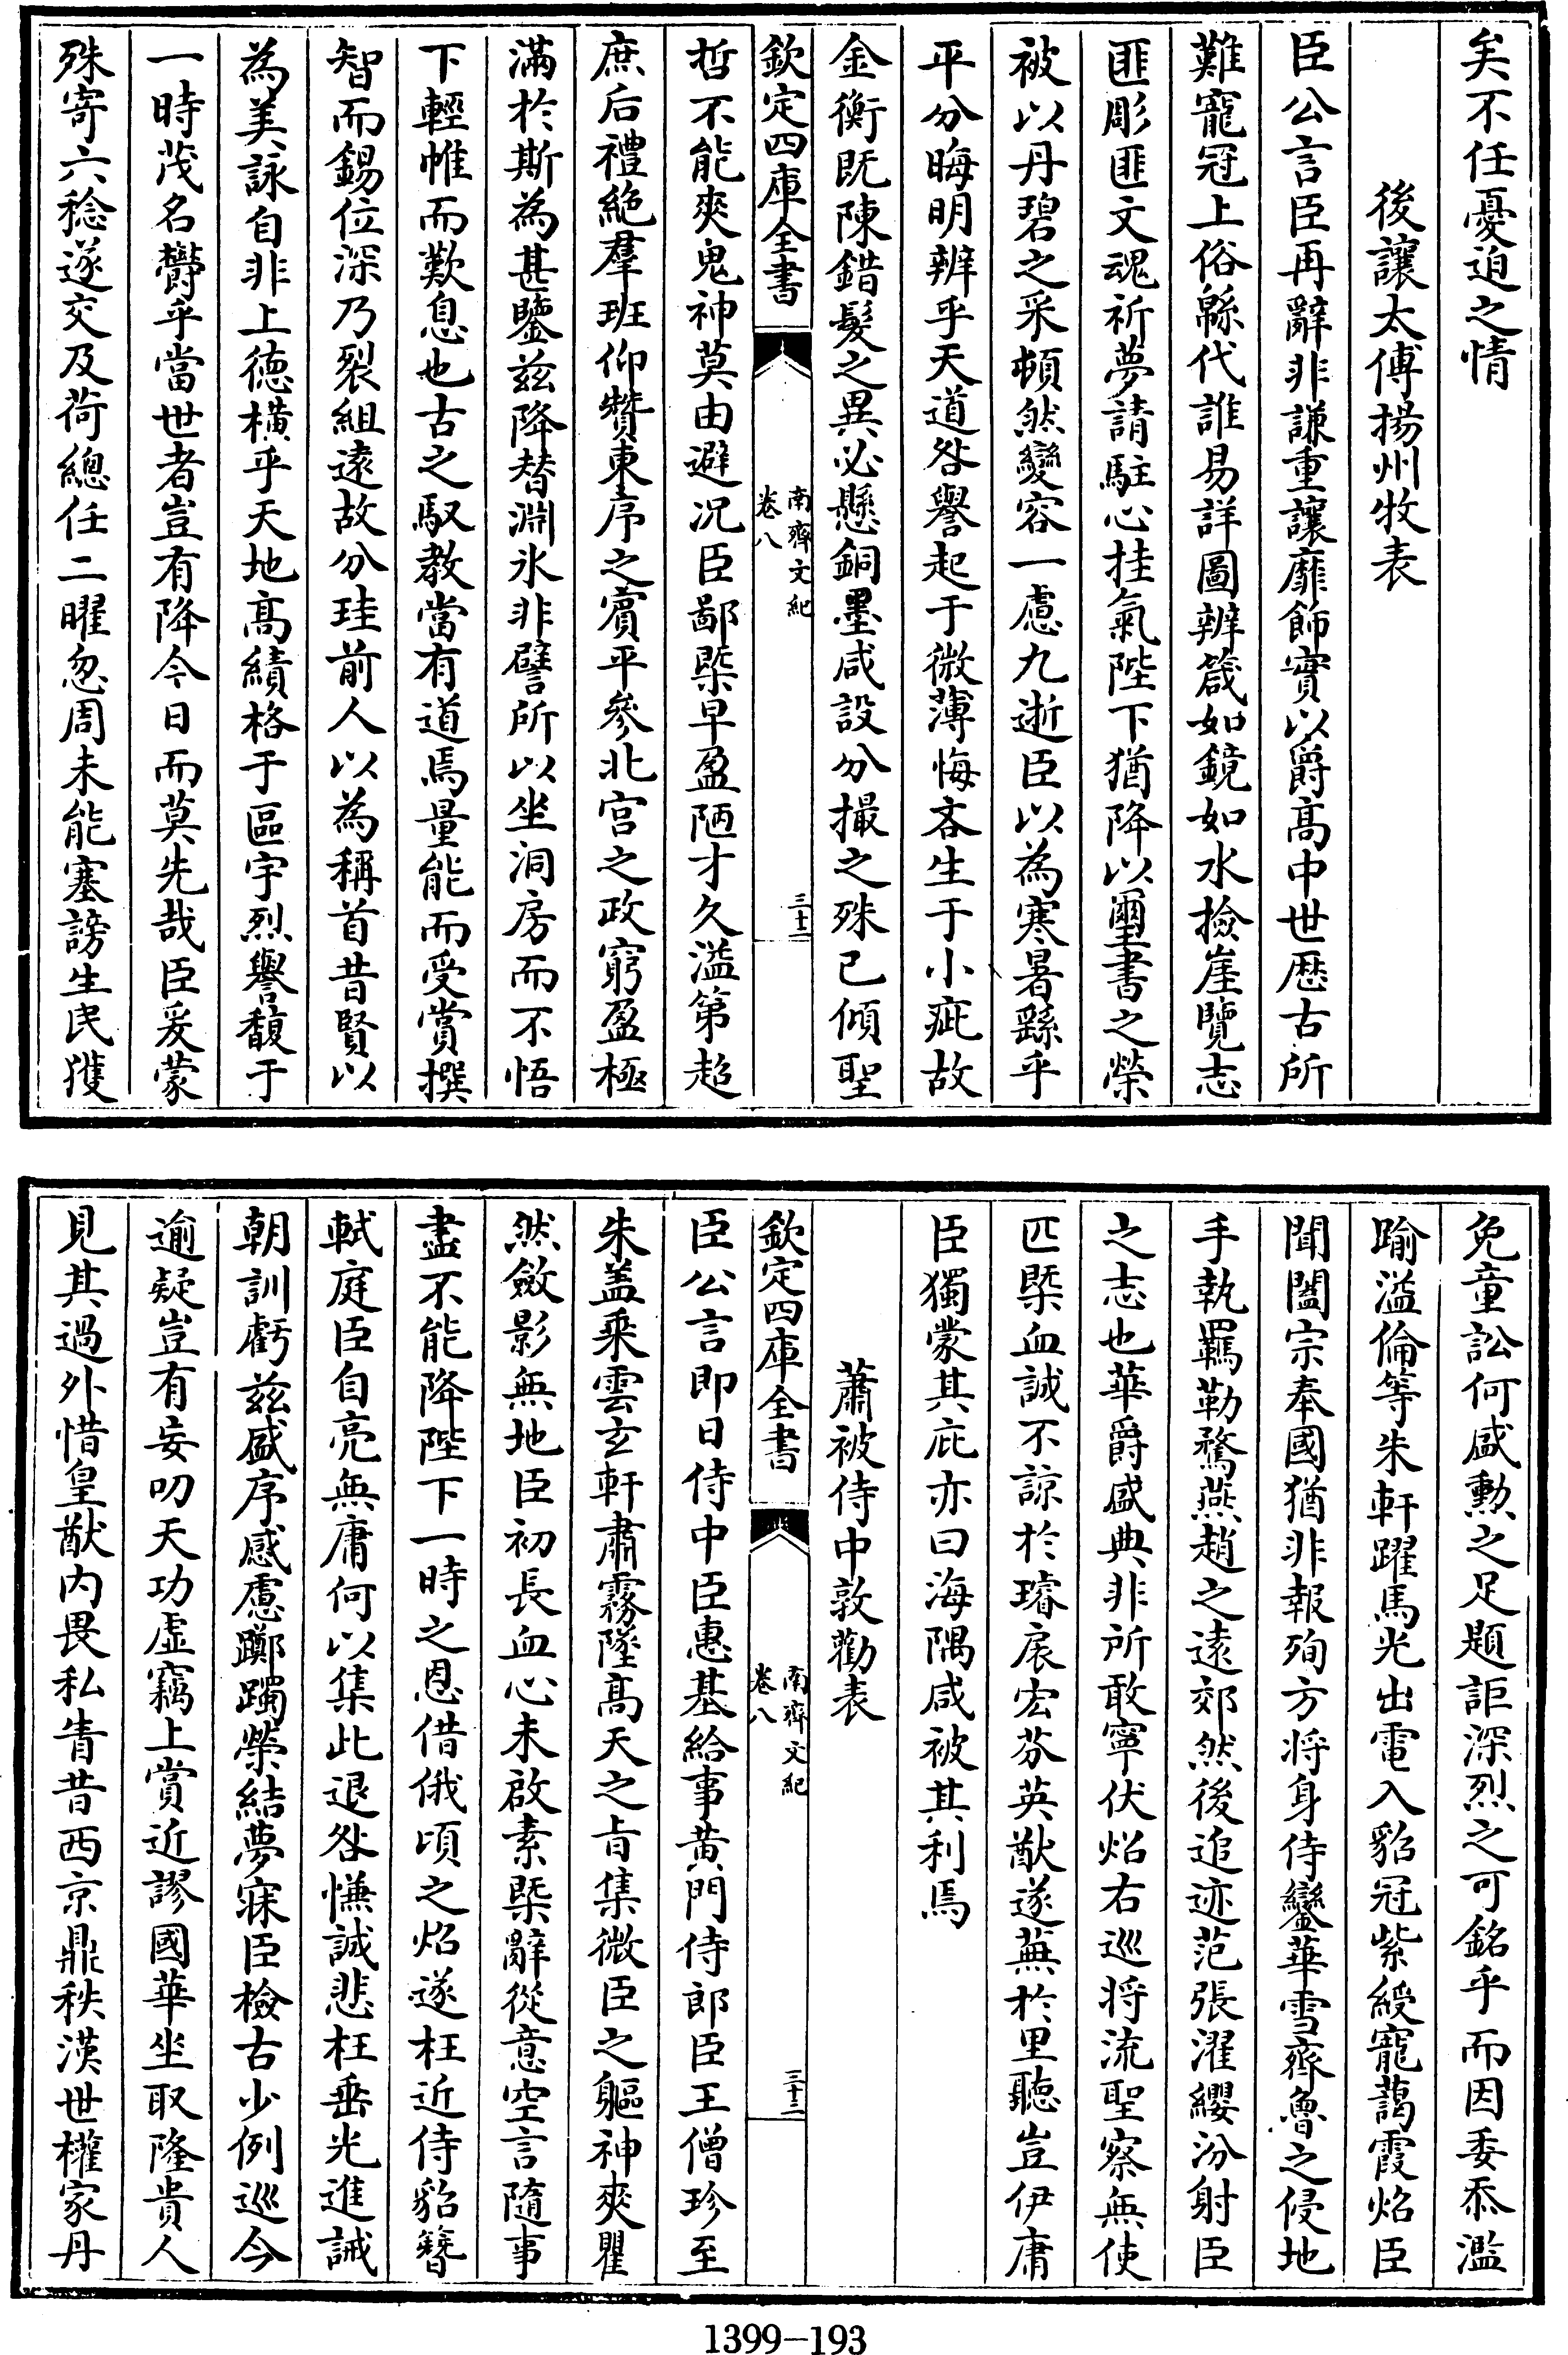 矣不任憂迫之情
後讓太傅揚州牧表
臣公言臣再辭非謙重讓靡飾實以爵高中世厯古所
難寵冠上俗緜代誰易詳圖辨箴如鏡如水撿崖覽志
匪彫匪文魂祈夢請駐心挂氣陛下猶降以璽書之榮
被以丹碧之采頓然變容一慮九逝臣以為寒暑繇乎
平分晦明辨乎天道咎譽起于微薄悔吝生于小疵故
金衡既陳錯髮之異必懸銅墨咸設分撮之殊已傾聖
欽定四庫全書
南齊文紀
卷八
三十二
哲不能爽鬼神莫由避况臣鄙槩早盈陋才久溢第超
庶后禮絶羣班仰贊東序之賓平參北宮之政窮盈極
滿於斯為甚鑒兹降替淵氷非譬所以坐洞房而不悟
下輕帷而歎息也古之馭教當有道焉量能而受賞撰
智而錫位深乃裂組遠故分珪前人以為稱首昔賢以
為美詠自非上徳横乎天地高績格于區宇烈譽馥于
一時茂名欝乎當世者豈有降今日而莫先哉臣爰蒙
殊寄六稔遂交及荷總任二曜忽周未能塞謗生民獲
免童訟何盛勲之足題詎深烈之可銘乎而因委忝濫
踰溢倫等朱軒躍馬光出電入貂冠紫綬寵藹霞焰臣
聞闔宗奉國猶非報殉方将身侍鑾華雪齊魯之侵地
手執羈勒騖燕趙之遠郊然後追迹范張濯纓汾射臣
之志也華爵盛典非所敢寧伏炤右巡将流聖察無使
匹槩血誠不諒於璿扆宏芬英猷遂蕪於里聽豈伊庸
臣獨蒙其庇亦曰海隅咸被其利焉
蕭被侍中敦勸表
欽定四庫全書
南齊文紀
卷八
三十三
臣公言即日侍中臣惠基給事黄門侍郎臣王僧珍至
朱盖乘雲玄軒肅霧墜高天之㫖集微臣之軀神爽瞿
然斂影無地臣初長血心未啟素槩辭從意空言隨事
盡不能降陛下一時之恩借俄頃之炤遂枉近侍貂簪
軾庭臣自亮無庸何以集此退咎慊誠悲枉垂光進誡
朝訓虧兹盛序感慮躑躅榮結夢寐臣檢古少例巡今
逾疑豈有妄叨天功虛竊上賞近謬國華坐取隆貴人
見其過外惜皇猷内畏私眚昔西京鼎秩漢世權家丹
1399-193